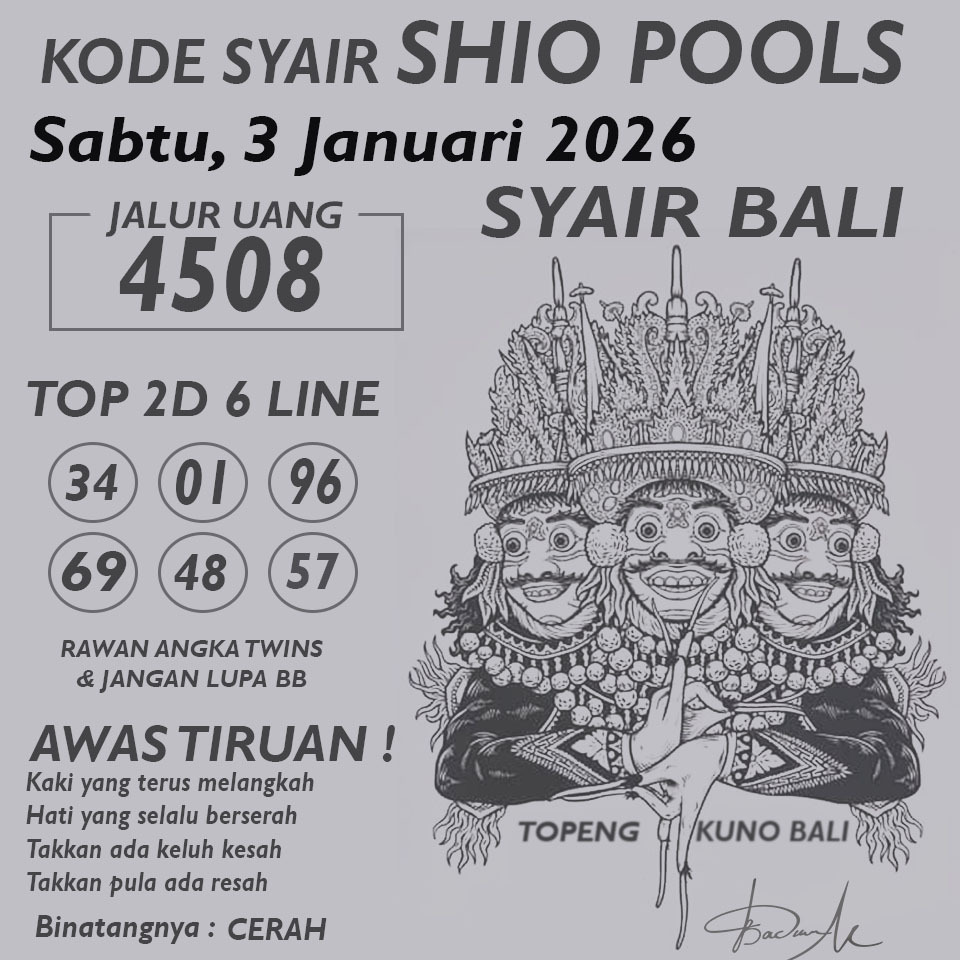 KODE SYAIR SHIO POOLS
Sabtu, 3 Januari 2026
SYAIR BALI
JALUR UANG
4508
TOP 2D 6 LINE
34 01 96
69 48 57
RAWAN ANGKA TWINS
& JANGAN LUPA BB
AWAS TIRUAN !
Kaki yang terus melangkah
Hati yang selalu berserah
Takkan ada keluh kesah
Takkan pula ada resah
Binatangnya : CERAH
TOPENG KUNO BALI